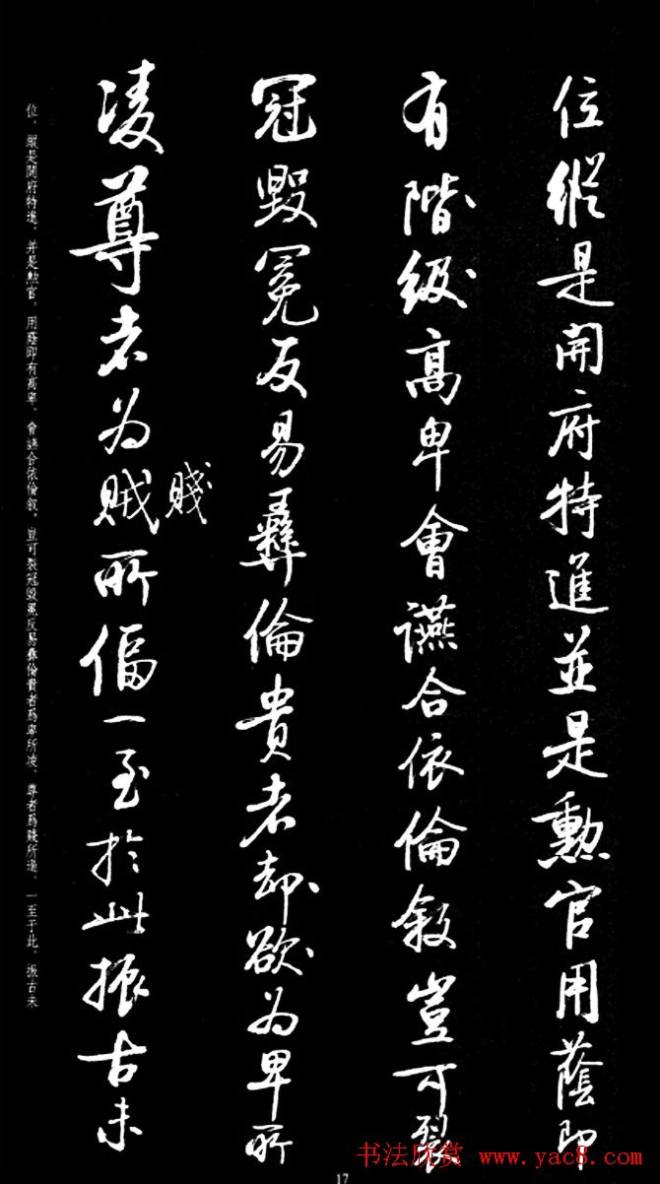 位縱是開府特進並是勳官用蔭即
有階級高卑會讌合依倫敘豈可裂
冠毀冕反易彝倫貴者却欲為卑所
賤
凌尊者為賊所偪一至於此振古未
位，縱是開府特進，并是勲官，用蔭即有高卑，會讌合依倫敘，豈可裂冠毀冕反易彝倫貴者爲卑所凌、尊者爲賤所逼，一至于此，振古未
17
书法欣赏 www.yac8.com